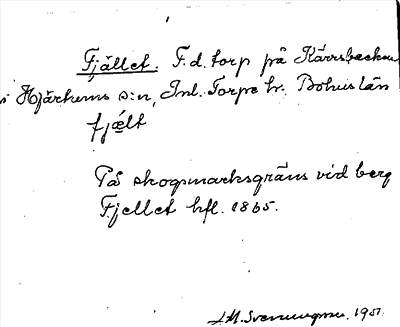 Fjället. F.d. torp på Kärrsbacken
i Hjärtums s:n, Inl. Torpe hr. Bohus län
fjælt
På skogsmarksgräns vid berg
Fjellet hfl. 1865.
J.M. Svenungsson. 1951.